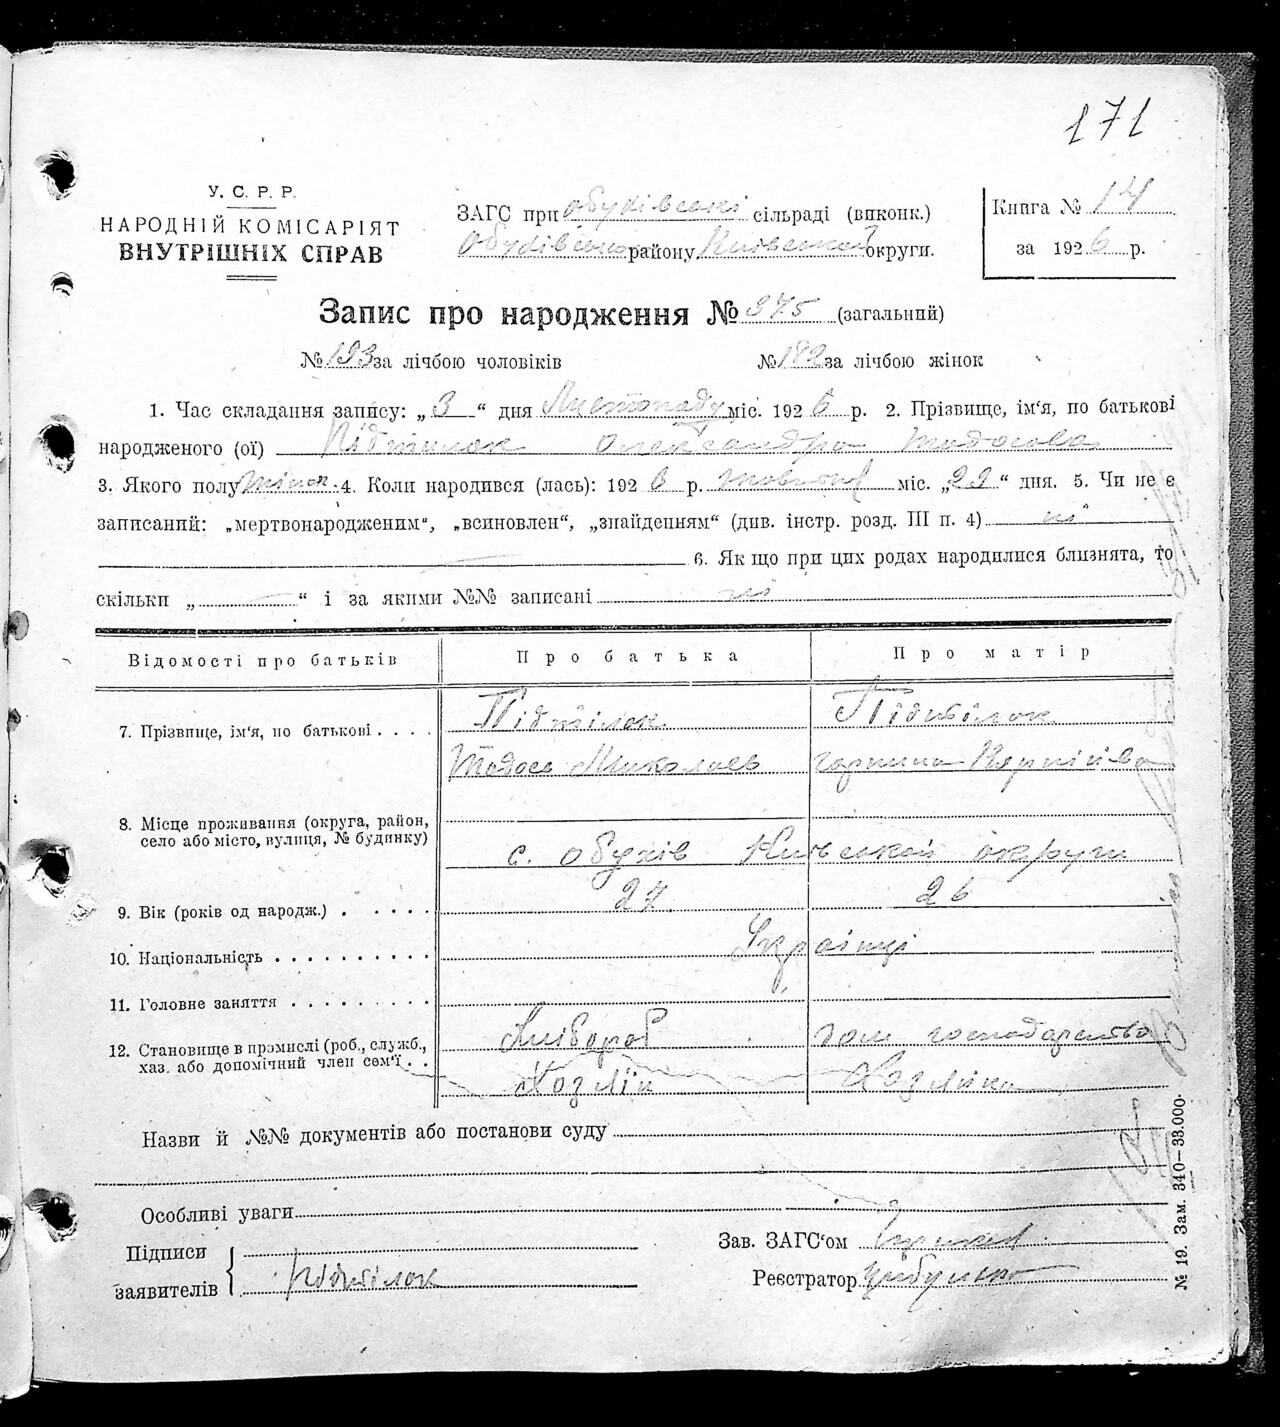 171
У. С. Р. Р.
НАРОДНІЙ КОМІСАРІЯТ
ВНУТРІШНІХ СПРАВ
ЗАГС при обухівські сільраді (виконк.)
Обухівсько району Київської округи.
Книга № 14
за 1926 р.
Запис про народження № 375 (загальний)
№ 193 за лічбою чоловіків № 182 за лічбою жінок
1. Час складання запису: „3“ дня Листопаду міс. 1926 р. 2. Прізвище, ім'я, по батькові
народженого (ої) Підтілок Олександра Тодосова
3. Якого полу жіноч. 4. Коли народився (лась): 1926 р. жовтня міс. „29“ дня. 5. Чи не є
записаний: „мертвонародженим“, „всиновлен“, „знайденням“ (див. інстр. розд. III п. 4) ні
6. Як що при цих родах народилися близнята, то
скільки „ “ і за якими №№ записані ні
Відомості про батьків Про батька Про матір
7. Прізвище, ім'я, по батькові . . . . Підтілок Підтілок
Тодось Миколаєв горпина Карпійва
8. Місце проживання (округа, район,
село або місто, вулиця, № будинку) с. Обухів Київської округи
9. Вік (років од народж.) . . . . . 27 26
10. Національність . . . . . . . . . . Українці
11. Головне заняття . . . . . . . . .
12. Становище в промислі (роб., служб., Хлібороб дом господарство
хаз. або допомічний член сем'ї . . Хазяїн Хазяйка
Назви й №№ документів або постанови суду
Особливі уваги
Підписи
заявителів Підтілок
Зав. ЗАГС'ом
Реєстратор Цибулько
№ 19. Зам. 340—33.000.